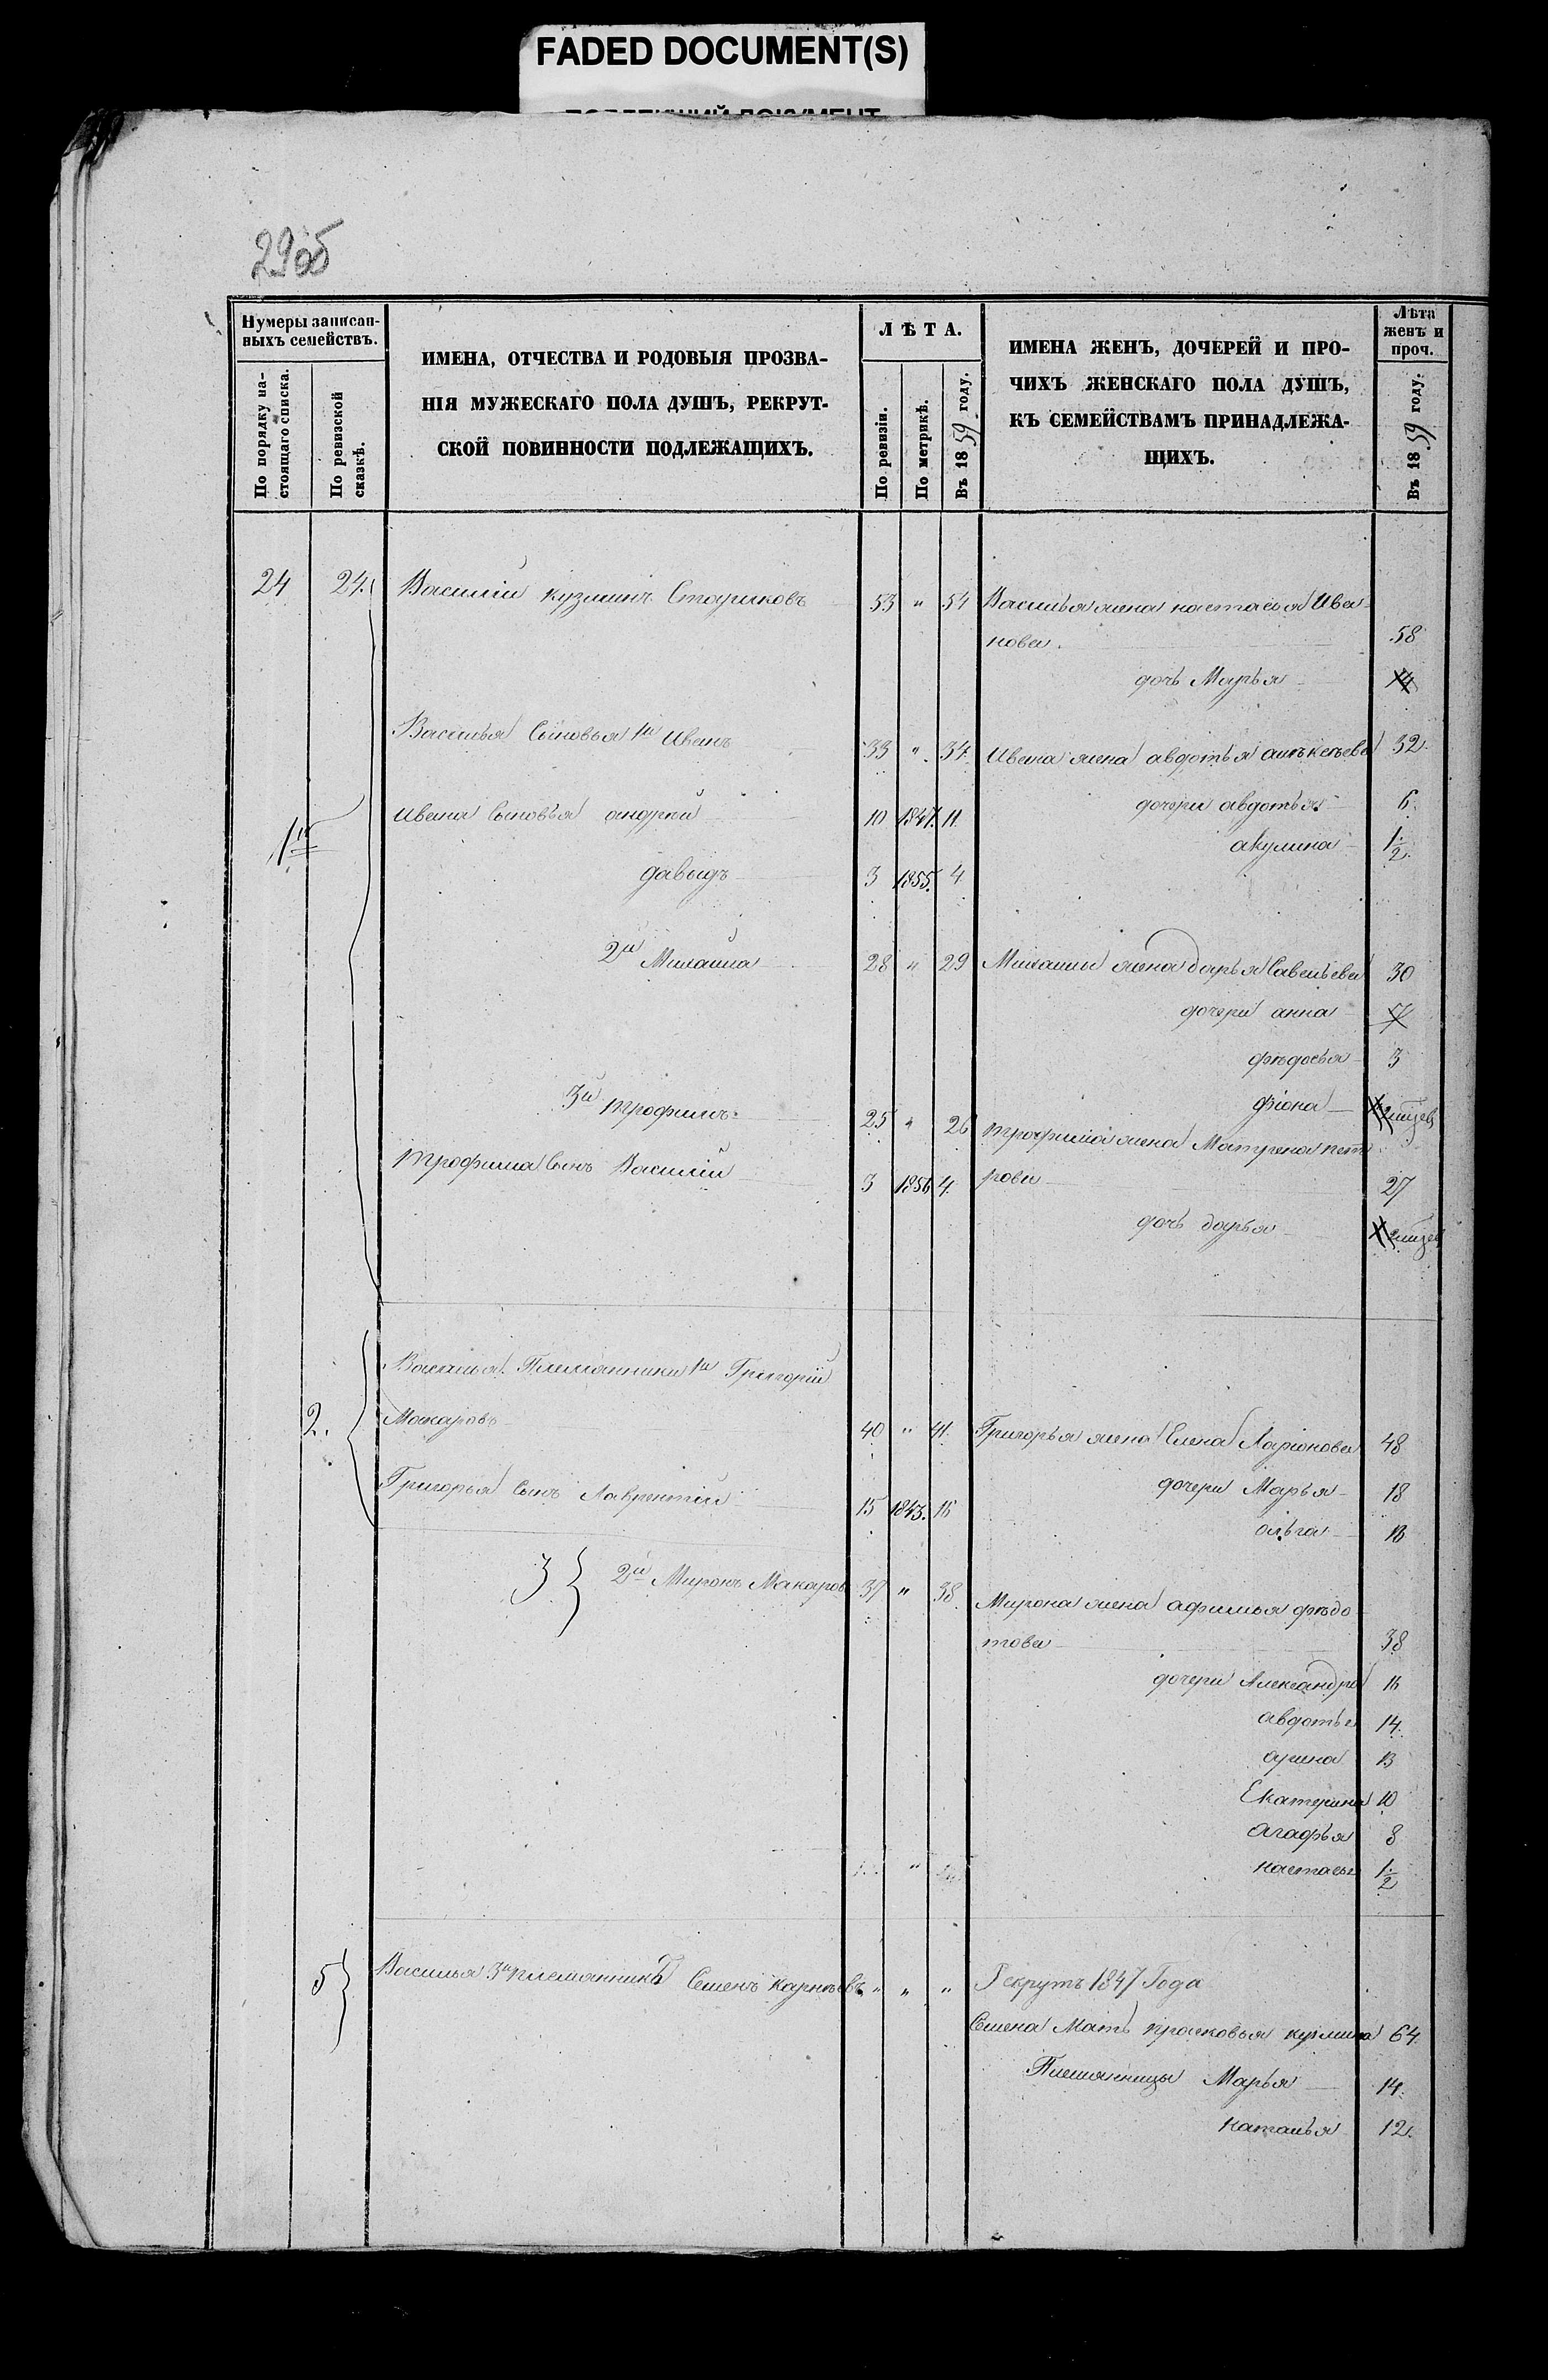 FADED DOCUMENT(S)
29об
Нумеры записан-
ныхъ семействъ.
По порядку на-
стоящаго списка.
По ревизской
сказкѣ.
ИМЕНА, ОТЧЕСТВА И РОДОВЫЯ ПРОЗВА-
НІЯ МУЖЕСКАГО ПОЛА ДУШЪ, РЕКРУТ-
СКОЙ ПОВИННОСТИ ПОДЛЕЖАЩИХЪ.
ЛѢТА.
По ревизіи.
По метрикѣ.
Въ 1859 году.
ИМЕНА ЖЕНЪ, ДОЧЕРЕЙ И ПРО-
ЧИХЪ ЖЕНСКАГО ПОЛА ДУШЪ,
КЪ СЕМЕЙСТВАМЪ ПРИНАДЛЕЖА-
ЩИХЪ.
Лѣта
женъ и
проч.
Въ 1859 году.
24 24. Василій кузминъ Стариковъ 53 " 54 Василья жена настасья Ива-
нова. 58
дочь Марья
Василья Сыновья 1й Иванъ 33 " 34 Ивана жена авдотья 32
Ивана Сыновья андрей 10 1847. 11 дочери авдотья 6
1й
акулина 1/2
давыдъ 3 1855. 4
2й 28 " 29 жена дарья Савельева 30
дочери анна
фѣдосья 3
3й трофимъ 25 " 26 фіона
трофима жена Матрена пет
трофима Сынъ Василій 3 1856 4 рова 27
дочь дарья
Василья Племянники 1й Григорій
2. Макаровъ 40 " 41. Григорья жена Елена Ларіонова 48
Григорья Сынъ Лаврентій 15 1843. 16 дочери Марья 18
ольга 13
3 2й Миронъ Макаровъ 37 " 38 Мирона жена афимья фѣдо
това 38
дочери Александра 16
авдотья 14.
арина 13
Екатерина 10
агафья 8
" настасья 1/2
5 Василья 3й племянникъ Семенъ карнѣевъ " " " Рекрутъ 1847 Года
Семена Мать прасковья кузмина 64
Племянницы Марья 14.
наталья 12.